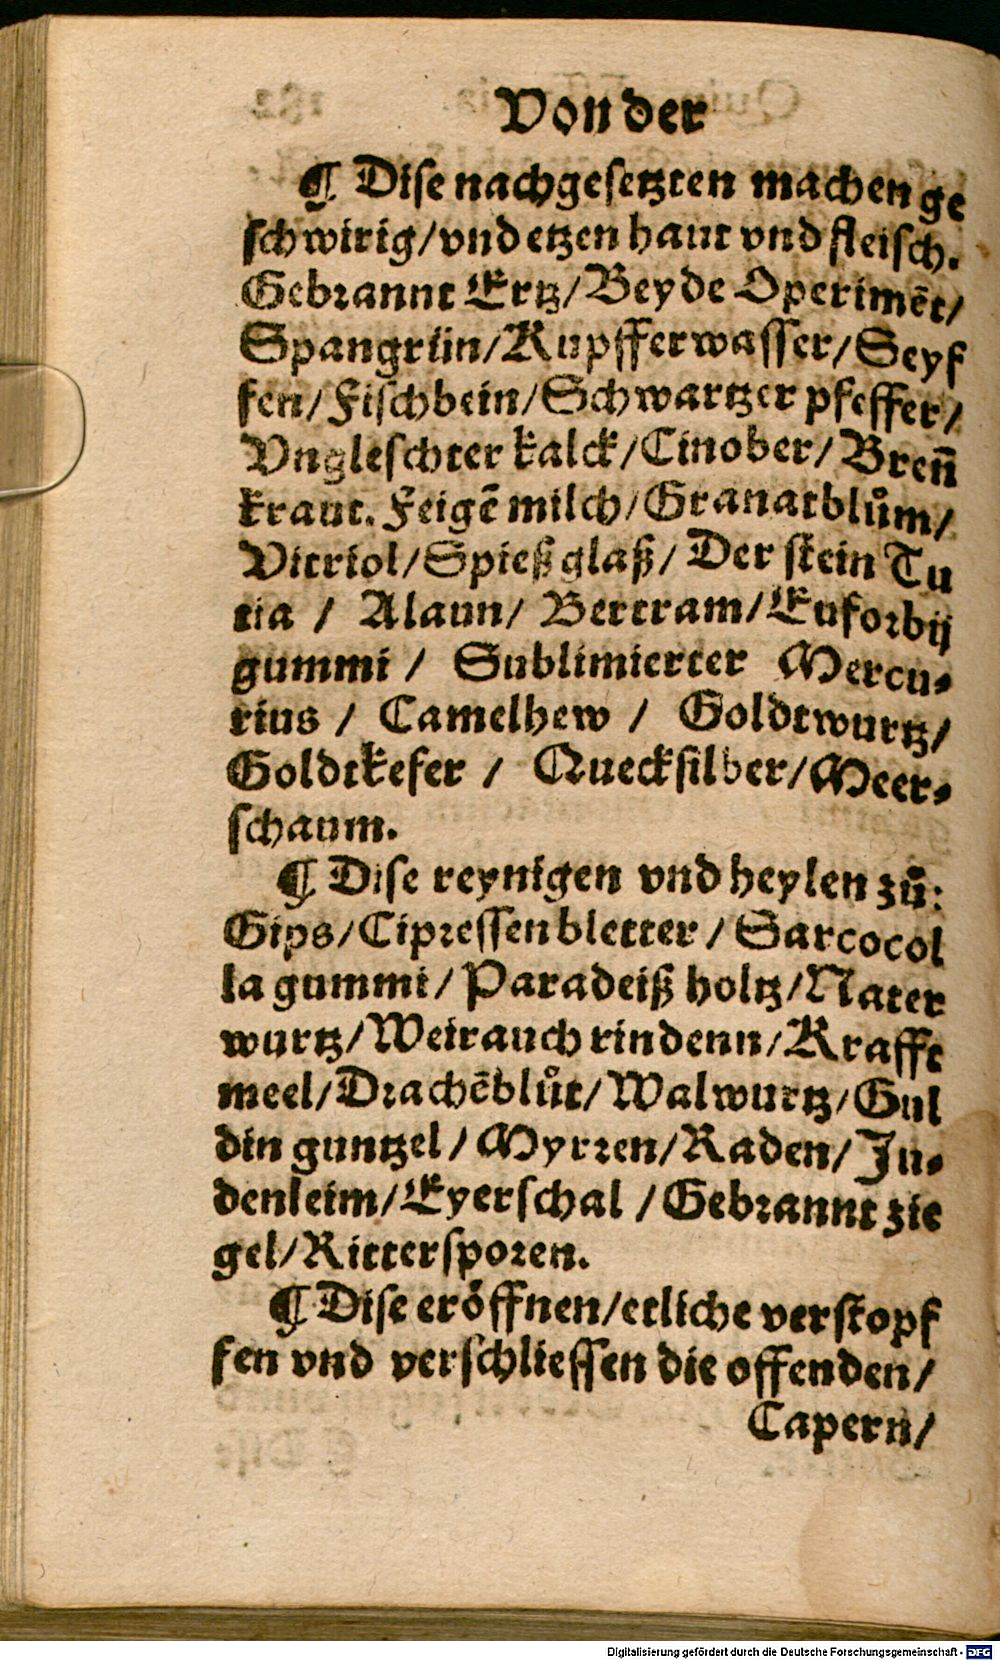 Von der
¶ Dise nachgesetzten machen ge
schwirig/vnd etzen haut vnd fleisch.
Gebrannt Ertz/Beyde Operimēt/
Spangrün/Kupfferwasser/Seyf
fen/Fischbein/Schwartzer pfeffer/
Vngleschter kalck/Cinober/Breñ
kraut. Feigē milch/Granatblům/
Vitriol/Spießglaß/Der stein Tu
tia / Alaun/ Bertram/Euforbij
gummi / Sublimierter Mercu-
rius / Camelhew / Goldtwurtz/
Goldtkefer / Quecksilber/Meer-
schaum.
¶ Dise reynigen vnd heylen zů:
Gips/Cipressenbletter/Sarcocol
la gummi/Paradeiß holtz/Nater
wurtz/Weirauch rindenn/Krafft
meel/Drachēblůt/Walwurtz/Gul
din guntzel/Myrren/Raden/Ju-
denleim/Eyerschal /Gebrannt zie
gel/Rittersporen.
¶ Dise eröffnen/etliche verstopf
fen vnd verschliessen die offenden/
Capern/
Digitalisierung gefördert durch die Deutsche Forschungsgemeinschaft - DFG